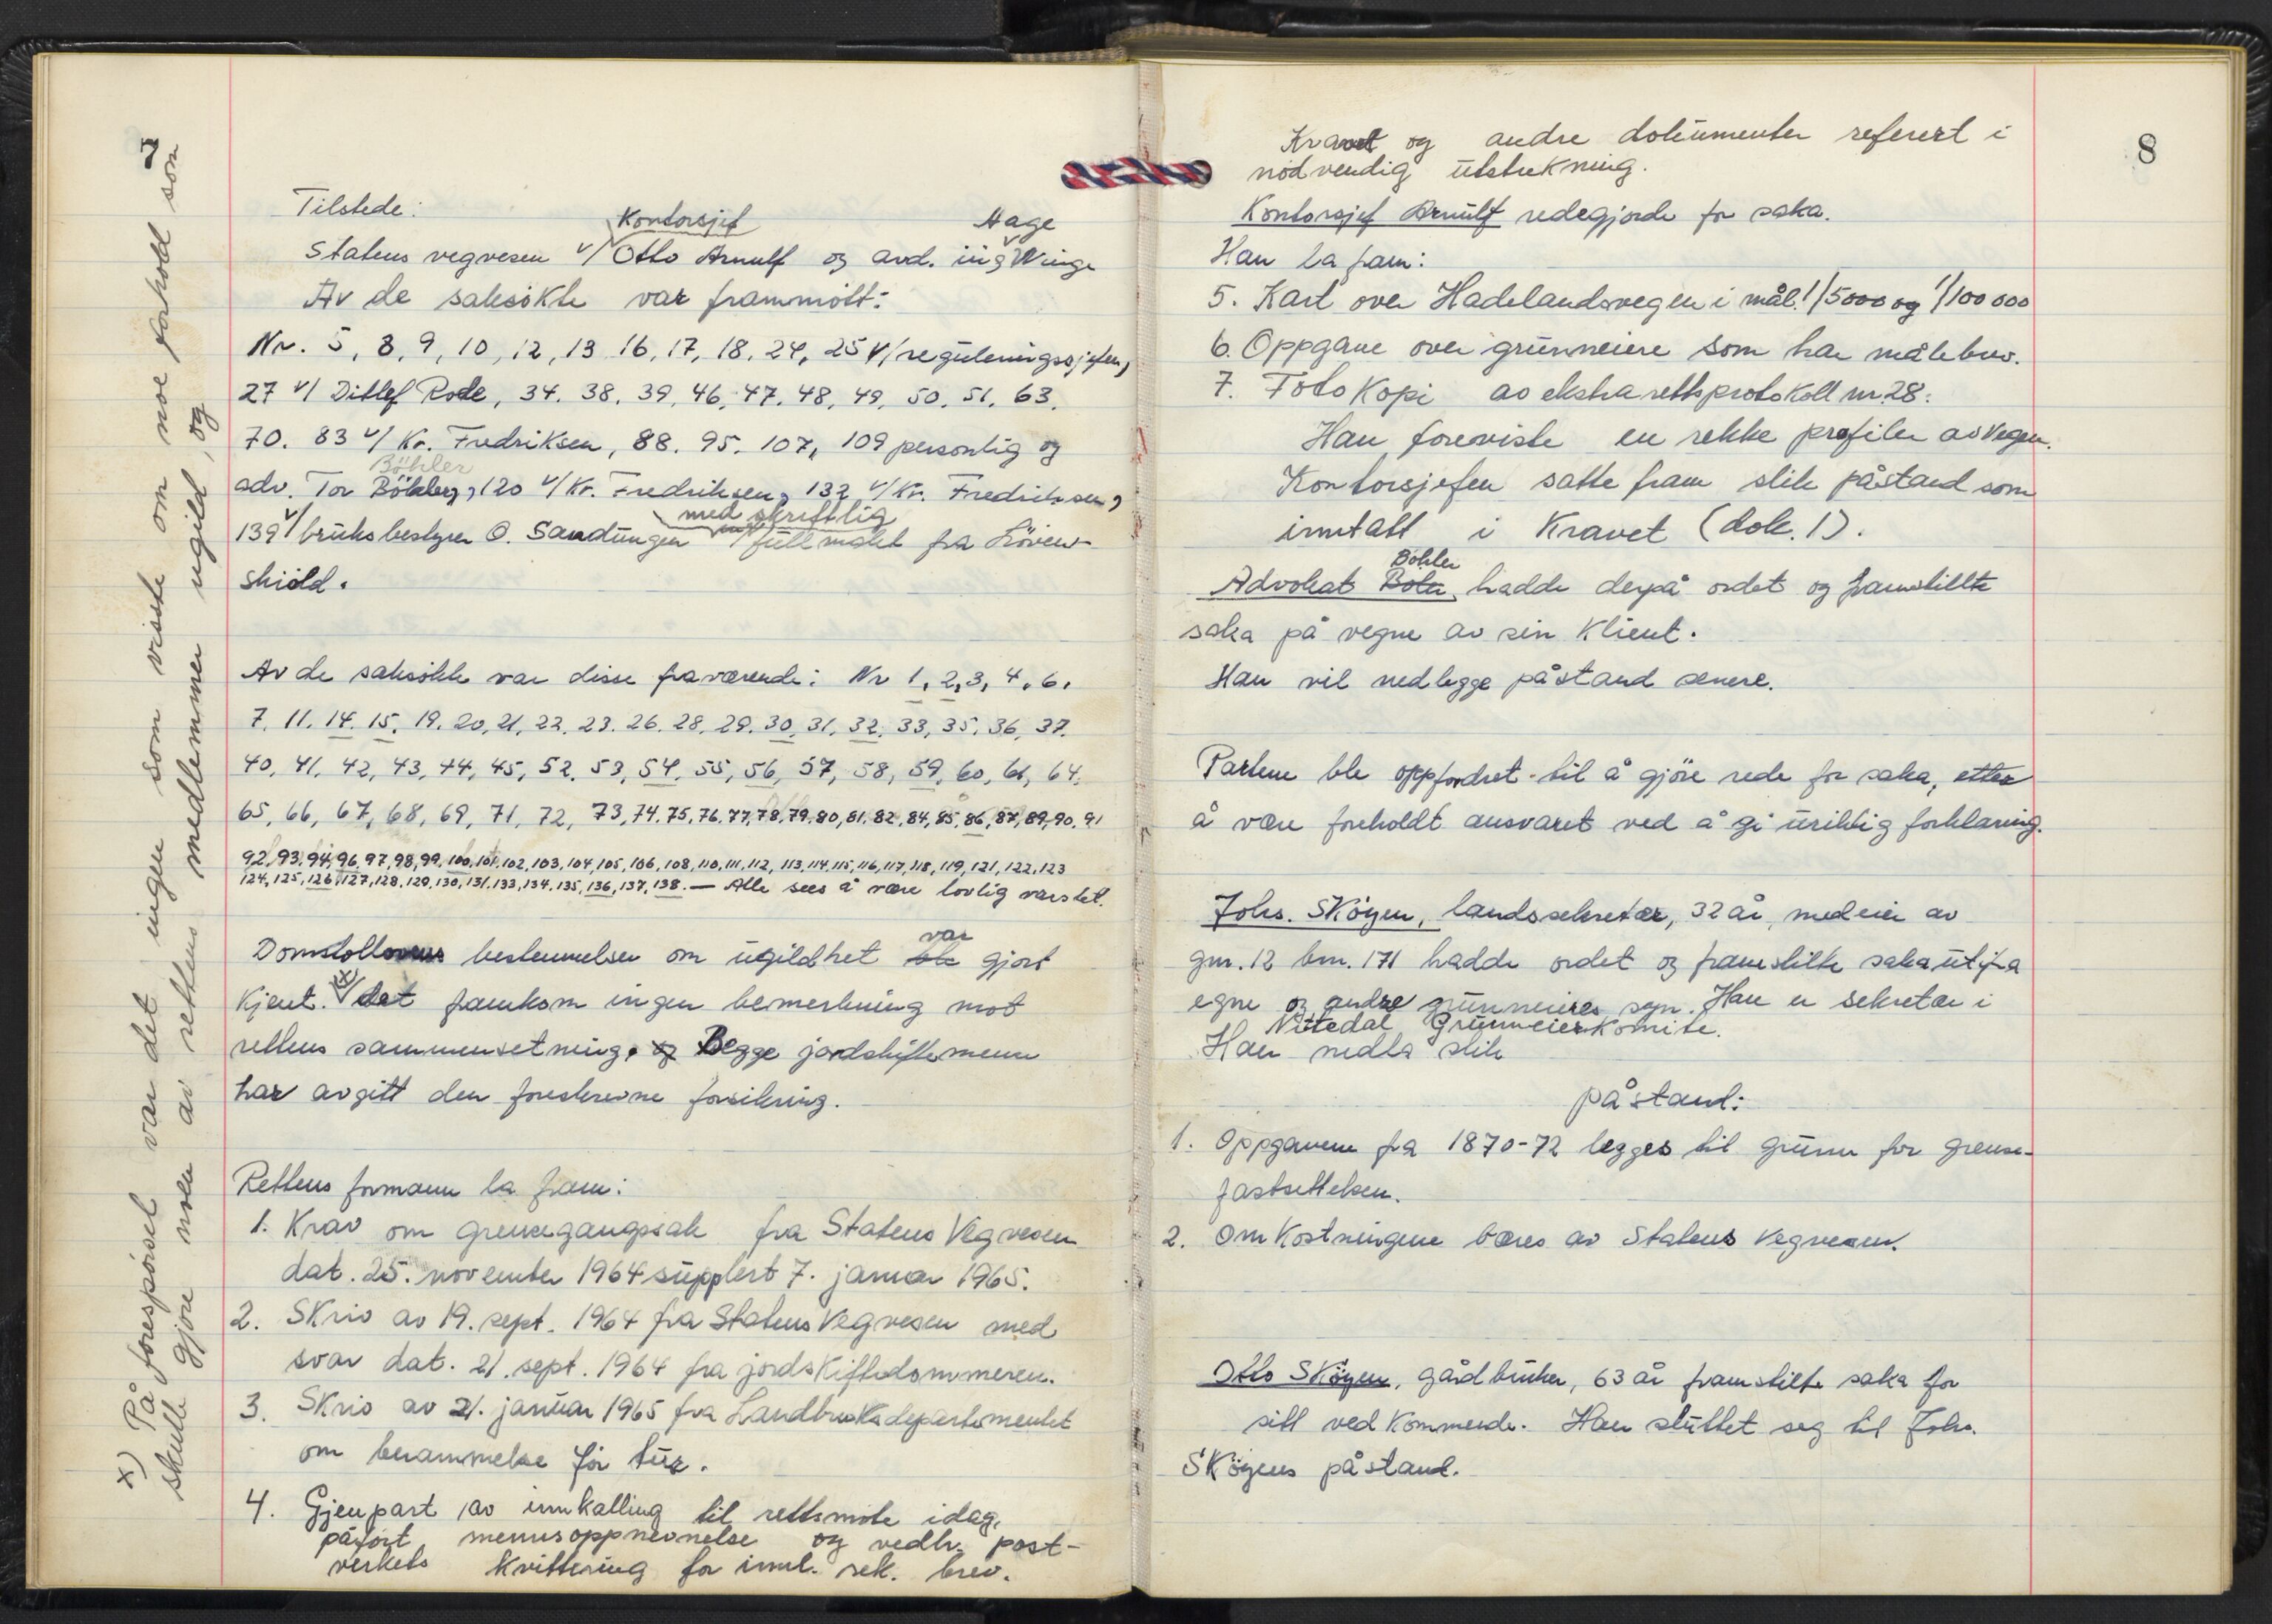 7
Tilstede:
Kontorsjef Hage
Statens vegvesen v/ Otto Arnulf og avd. ing Winge
Av de saksökte var frammött:
Nr. 5, 8, 9, 10, 12, 13 16, 17, 18, 24, 25 v/reguleringssjefen,
27 v/ Ditlef Rode, 34. 38. 39. 46. 47. 48. 49. 50. 51. 63.
70. 83 v/ Kr. Fredriksen, 88. 95. 107, 109 personlig og
Böhler
adv. Tor 120 v/ Kr. Fredriksen, 132 v/ Kr. Fredriksen,
med skriftlig
139 v/ bruksbestyrer O. Sandungen fullmakt fra Löven-
skiöld.
Av de saksökte var disse fraværende: Nr 1, 2, 3, 4. 6.
7. 11. 14. 15. 19. 20, 21, 22. 23. 26. 28. 29. 30, 31, 32, 33, 35, 36, 37.
40, 41, 42, 43, 44, 45, 52. 53, 54, 55, 56, 57, 58, 59, 60, 61, 64.
65, 66, 67, 68, 69, 71, 72, 73, 74. 75, 76. 77, 78, 79. 80, 81. 82, 84, 85, 86, 87, 89, 90. 91
92, 93. 94, 96, 97, 98, 99. 100, 101, 102, 103, 104, 105, 106, 108, 110, 111, 112, 113, 114, 115, 116, 117, 118, 119, 121, 122, 123
124, 125, 126, 127, 128, 129, 130, 131, 133, 134, 135, 136, 137, 138. — Alle sees å være lovlig varslet.
var
Domstollovens bestemmelser om ugildhet ble gjort
x)
kjent. det framkom ingen bemerkning mot
rettens sammensetning. og Begge jordskiftemenn
har avgitt den foreskrevne forsikring.
Rettens formann la fram:
1. Krav om grensegangssak fra Statens Vegvesen
dat. 25. november 1964 supplert 7. januar 1965.
2. Skriv av 19. sept. 1964 fra Statens Vegvesen med
svar dat. 21. sept. 1964 fra jordskiftedommeren.
3. Skriv av 21. januar 1965 fra Landbruksdepartementet
om berammelse för tur.
4. Gjenpart av innkalling til rettsmöte idag,
påfört mennsoppnevnelse og vedh. post-
verkets kvittering for innl. rek. brev.
x) På forespörsel var det ingen som visste om noe forhold som
skulle gjöre noen av rettens medlemmer ugild, og
8
Kravet og andre dokumenter referert i
nödvendig utstrekning.
Kontorsjef Arnulf redegjorde for saka.
Han la fram:
5. Kart over Hadelandsvegen i mål. 1/5000 og 1/100 000
6. Oppgave over grunneiere som har målebrev.
7. Fotokopi av ekstrarettsprotokoll nr. 28.
Han foreviste en rekke profiler av vegen.
Kontorsjefen satte fram slik påstand som
inntatt i Kravet (dok. 1).
Böhler
Advokat hadde derpå ordet og framstillte
saka på vegne av sin klient.
Han vil nedlegge påstand senere.
Partene ble oppfordret til å gjöre rede for saka, etter
å være foreholdt ansvaret ved å gi uriktig forklaring.
Johs. Sköyen, landssekretær, 32 år, medeier av
gnr. 12 bnr. 171 hadde ordet og framstilte saka ut fra
egne og andre grunneieres syn. Han er sekretær i
Nittedal Grunneierkomite.
Han nedla slik
påstand:
1. Oppgavene fra 1870-72 legges til grunn for grense-
fastsettelsen.
2. Omkostningene bæres av Statens Vegvesen.
Otto Sköyen, gårdbruker, 63 år framstilte saka for
sitt vedkommende. Han sluttet seg til Johs.
Sköyens påstand.